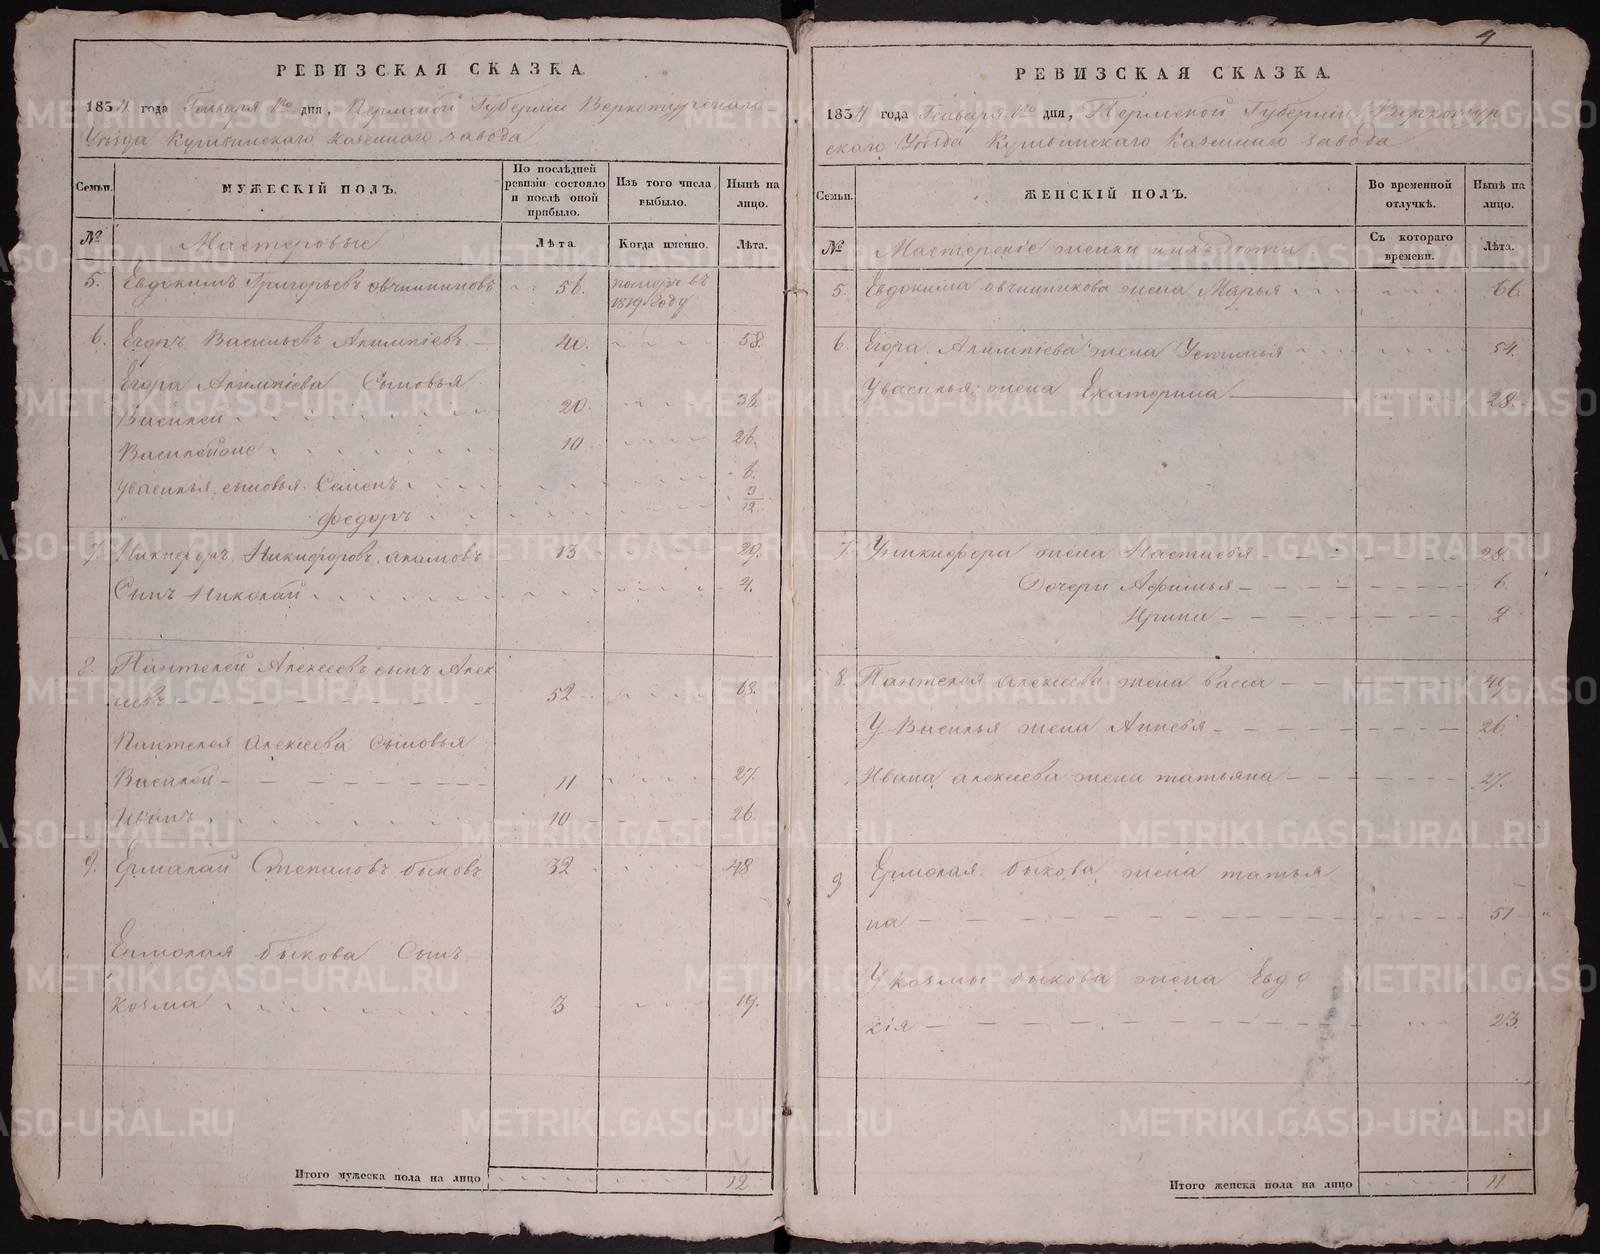 РЕВИЗСКАЯ СКАЗКА.
1834 года Генваря 1го дня, Пермской Губернии Верхотурскаго
Уѣзда Кушвинскаго казеннаго завода
Семьи.
МУЖЕСКІЙ ПОЛЪ.
По послѣдней ревизіи состояло и послѣ оной прибыло.
Изъ того числа выбыло.
Нынѣ на лицо.
№
Мастеровые
Лѣта.
Когда именно.
Лѣта.
5. Евдокимъ Григорьевъ овчинниковъ 56. померъ въ
1819 году
6. Егоръ Васильевъ Алимпіевъ 40. 58.
Егора Алимпіева Сыновья
Василей 20. 36.
Василейже 10 26.
Увасилья сыновья Семенъ 6.
Федоръ 9/12
7. Никифоръ Никифоровъ 13 29.
Сынъ Николай 4.
8. Пантелей Алексеевъ сынъ Алек
сеевъ 52 68.
Пантелея Алексеева Сыновья
Василей 11 27.
Иванъ 10 26
9. Ермолай Степановъ быковъ 32 48
Ермолая быкова Сынъ
Козма 3 19.
Итого мужеска пола на лицо 12
4
РЕВИЗСКАЯ СКАЗКА.
1834 года Генваря 1го дня, Пермской Губерніи Верхотур
скаго Уѣзда Кушвинскаго Казеннаго завода
Семьи.
ЖЕНСКІЙ ПОЛЪ.
Во временной отлучкѣ.
Нынѣ на лицо.
№
Мастерскіе женки ихъ
Съ котораго времени.
Лѣта.
5. Евдокима овчинникова жена Марья 66.
6. Егора Алимпіева жена Устинья 54.
Увасилья жена Екатерина 28.
7. Уникифора жена Настасья 28.
Дочери Афимья 6.
Ирина 2
8. Пантелея алексеева жена васса 49
У Василья жена 26
Ивана алексеева жена татьяна 27.
9 Ермолая быкова жена татья
на 51
У козмы быкова жена Евдо
кія 23.
Итого женска пола на лицо 11